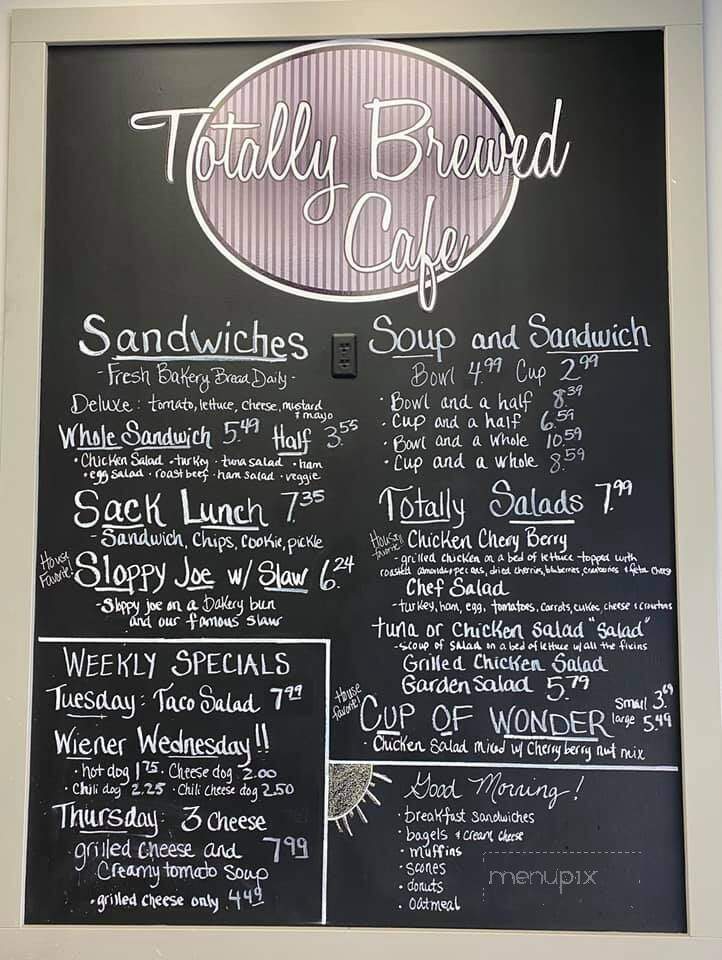 Totally Brewed
Cafe
Sandwiches
- Fresh Bakery Bread Daily -
Deluxe: tomato, lettuce, cheese, mustard
+ mayo
Whole Sandwich 5.49 Half 3.55
• Chicken Salad • turkey • tuna salad • ham
• egg salad • roast beef • ham salad • veggie
Sack Lunch 7.35
- Sandwich, Chips, Cookie, pickle
House Favorite!
Sloppy Joe w/ Slaw 6.24
- Sloppy joe on a Bakery bun
and our famous slaw
Soup and Sandwich
Bowl 4.99 Cup 2.99
• Bowl and a half 8.39
• Cup and a half 6.59
• Bowl and a whole 10.59
• Cup and a whole 8.59
Totally Salads 7.99
House favorite!!
Chicken Chery Berry
- grilled chicken on a bed of lettuce topped with
roasted almonds, pecans, dried cherries, blueberries, cranberries & feta cheese
Chef Salad
- turkey, ham, egg, tomatoes, carrots, cukes, cheese & croutons
tuna or Chicken Salad "Salad"
- scoop of salad on a bed of lettuce w/ all the fixins
Grilled Chicken Salad
Garden Salad 5.79
House favorite!
CUP OF WONDER small 3.69
large 5.49
• Chicken Salad mixed w/ Cherry berry nut mix
WEEKLY SPECIALS
Tuesday: Taco Salad 7.99
Wiener Wednesday!!
• hot dog 1.75 • Cheese dog 2.00
• Chili dog 2.25 • Chili cheese dog 2.50
Thursday: 3 cheese
grilled cheese and 7.99
Creamy tomato soup
• grilled cheese only 4.49
Good Morning!
• breakfast sandwiches
• bagels & cream cheese
• muffins
• scones
• donuts
• oatmeal
menupix